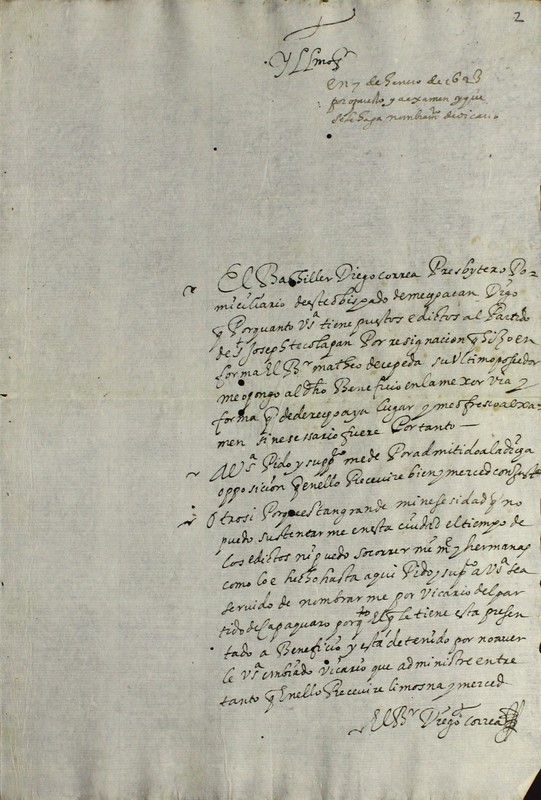 2
Yllmo Sr
En 7 de henero de 1623
por opuesto y a examen y que
se le haga nombramto de vicario
El Bachiller Diego Correa Presbytero Do-
miciliario deeste obispado de mechoacan Digo
q Porquanto Vsa tiene puestos edictos al Partido
de S Joseph tecolapan Por resignacion q hizo en
forma El Br matheo de cepeda su Vltimo posedor
me opongo al dho Beneficio en la mexor via y
forma q de derecho aya lugar y me ofresco al exa-
men si nesessario fuere Por tanto
A Vsa Pido y suppco me de Por admitido a la dicha
opposicion q en ello Receuire bien y merced con Just
Otrosi Porque es tan grande mi nesesidad y no
puedo sustentarme en esta ciudad el tiempo de
los edictos ni puedo socorrer mi me y hermanas
como loe hecho hasta aqui Pido y supco a Vsa sea
seruido de nombrarme por Vicario del par
tido de Capaquaro porq El q le tiene esta presen
tado a Beneficio y está detenido por no auer
le Vsa embiado Vicario que administre entre
tanto q En ello Receuire limosna y merced
El Br Diego Correa